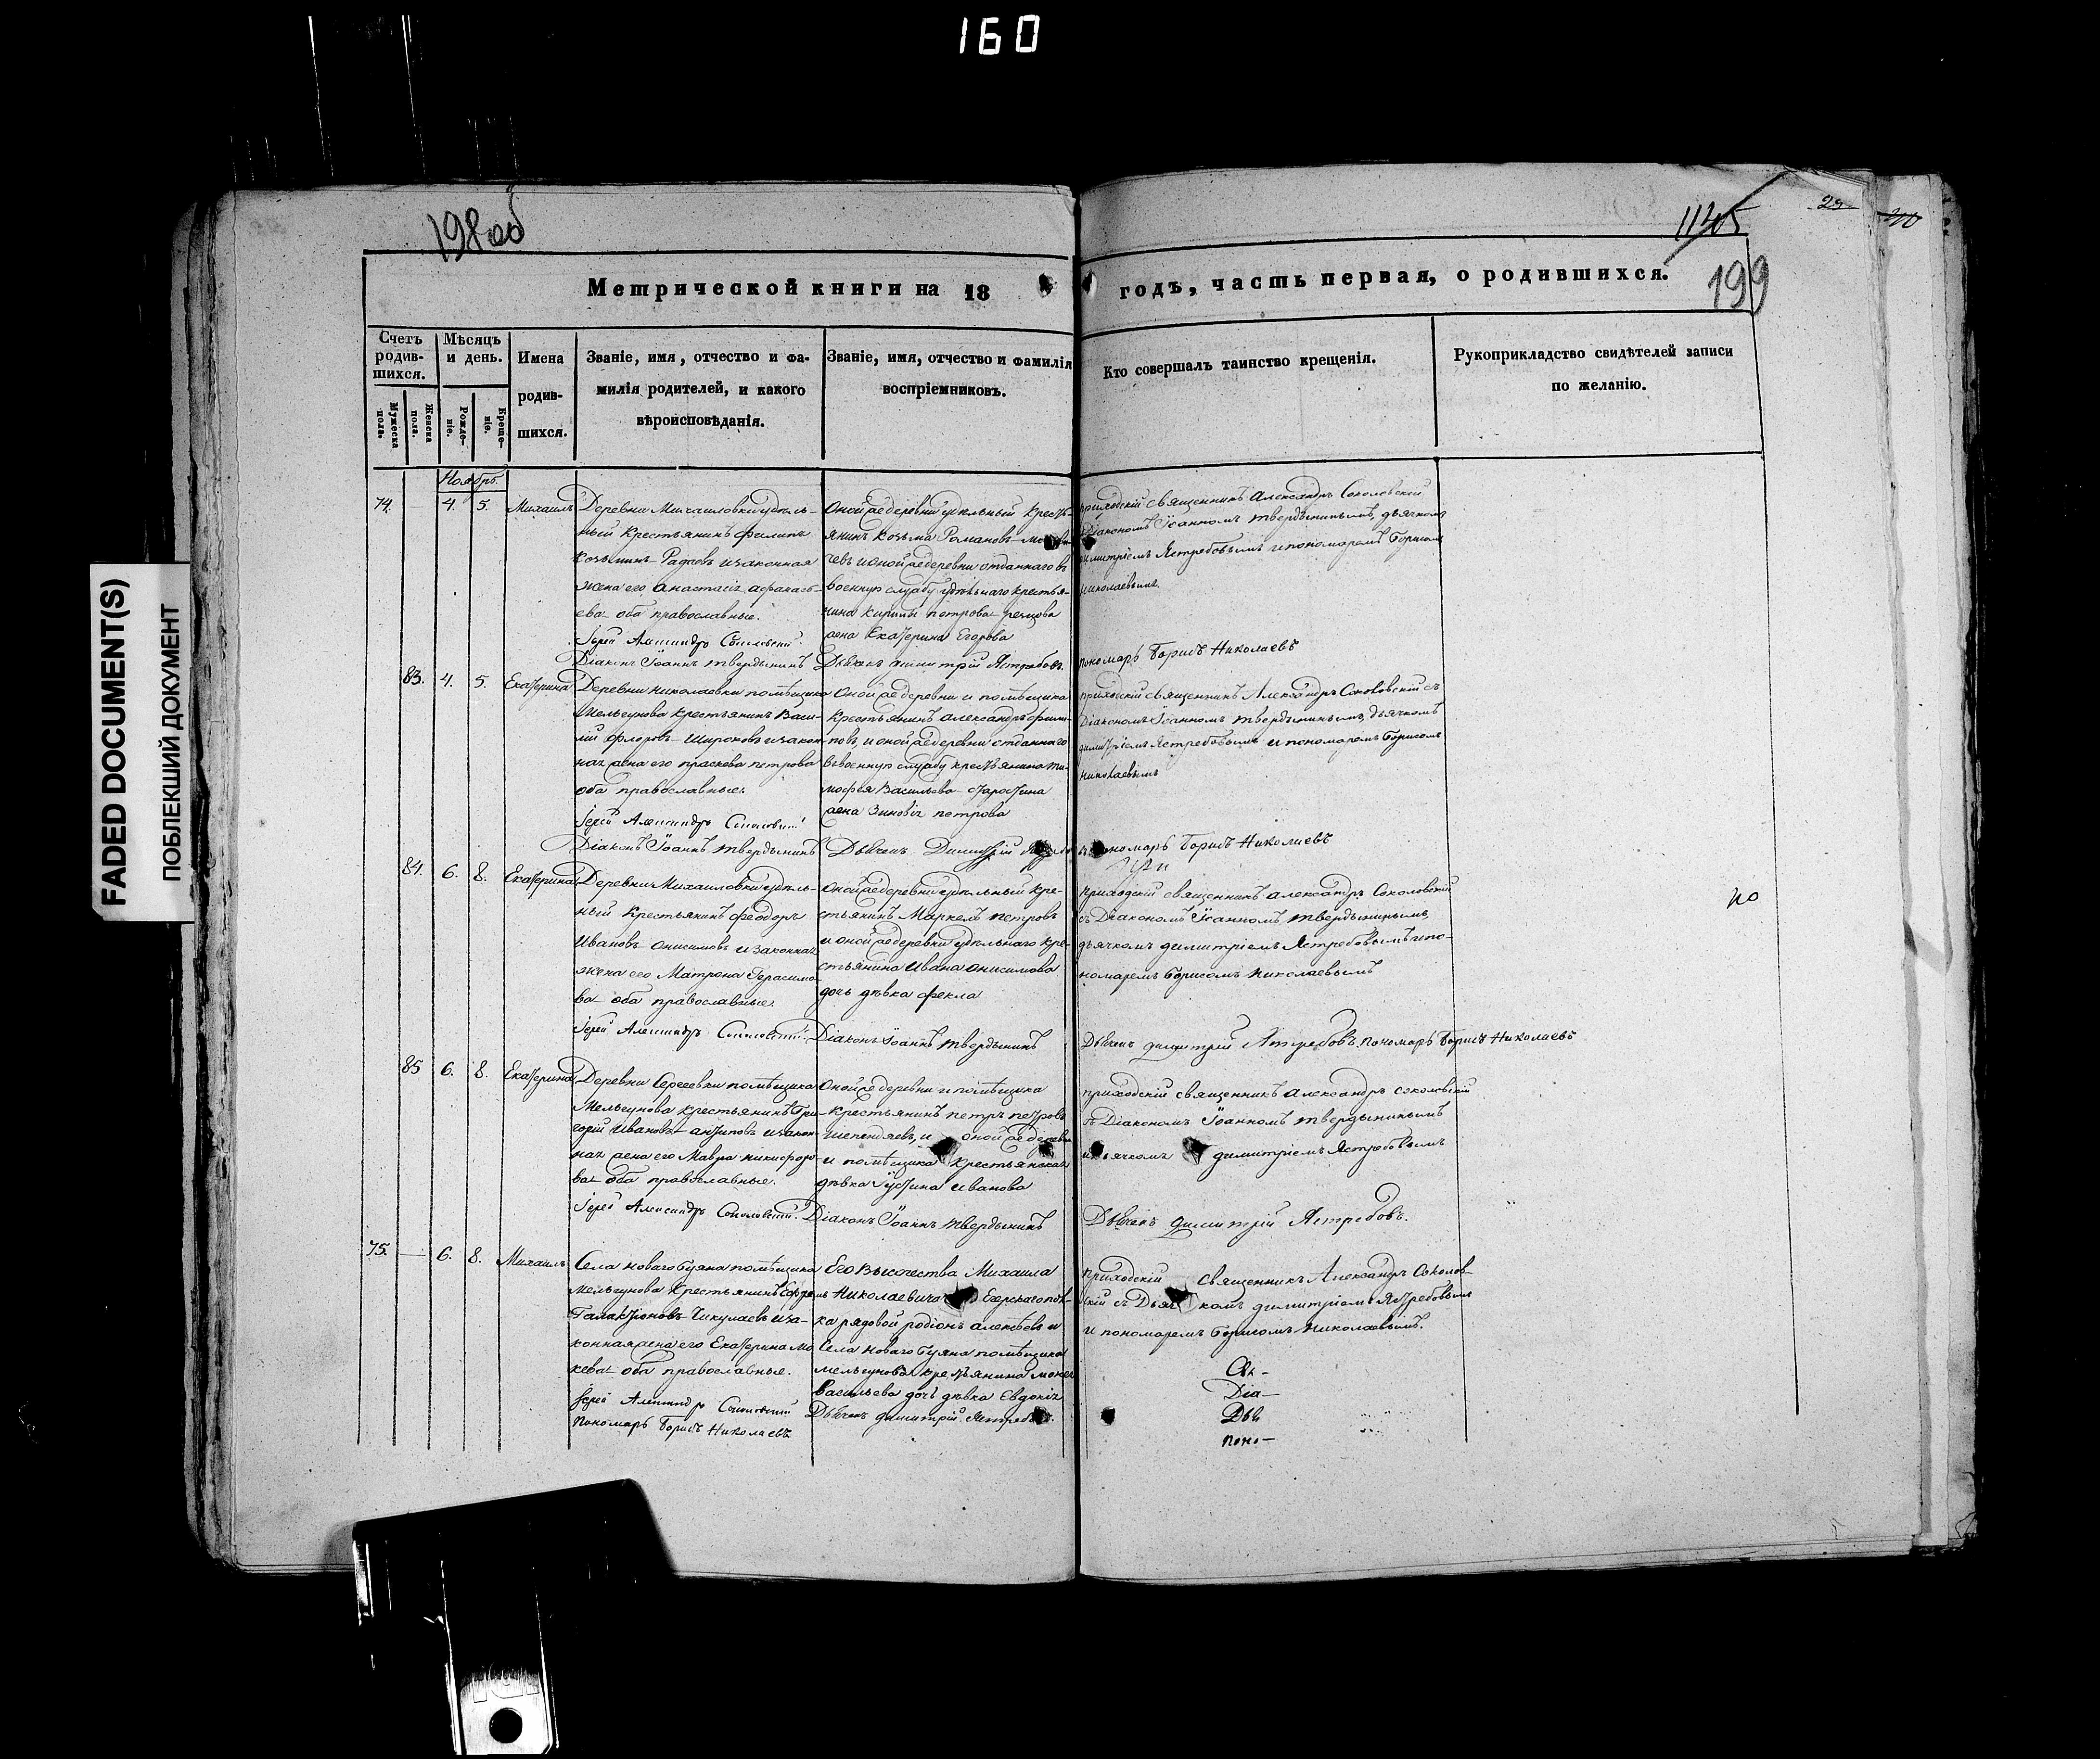 160
FADED DOCUMENT(S)
ПОБЛЕКШИЙ ДОКУМЕНТ
198об
1145
29
199
Метрической книги на 18 годъ, часть первая, о родившихся.
Счетъ родив-шихся.
Мужеска пола.
Женска пола.
Мѣсяцъ и день.
Рожде-ніе.
Креще-ніе.
Имена родив-шихся.
Званіе, имя, отчество и фа-
милія родителей, и какого
вѣроисповѣданія.
Званіе, имя, отчество и фамилія
воспріемниковъ.
Кто совершалъ таинство крещенія.
Рукоприкладство свидѣтелей записи
по желанію.
Ноябрь.
74. 4. 5. Михаилъ
Деревни Михаиловки удѣль-
ный крестьянинъ Филипъ
Козьминъ Радаевъ и законная
жена его Анастасія Афанась-
ева оба православные.
Іерей Александръ Соколовскій
Діаконъ Іоаннъ Твердынинъ
Оной же деревни удѣльный кресть-
янинъ Козьма Романовъ
и оной же деревни отданнаго въ
военную службу удѣльнаго крестья-
нина Кирилы Петрова
жена Екатерина Егорова
Дьячекъ Димитрій Ястребовъ.
приходскій священникъ Александръ Соколовскій
Діакономъ Іоанномъ Твердынинымъ, дьячкомъ
Димитріемъ Ястребовымъ и пономаремъ Борисомъ
Николаевымъ.
пономарь Борисъ Николаевъ
83. 4. 5. Екатерина
Деревни Николаевки помѣщика
Мельгунова крестьянинъ Васи-
лій Флоровъ Широковъ и закон-
ная жена его Праскева Петрова
оба православные.
Іерей Александръ Соколовскій
Діаконъ Іоаннъ Твердынинъ
Оной же деревни и помѣщика
крестьянинъ Александръ Фили-
повъ, и оной же деревни отданнаго
въ военную службу крестьянина Ти-
мофея Васильева Старостина
жена Зиновія Петрова
Дьячекъ Димитрій
приходскій священникъ Александръ Соколовскій съ
Діакономъ Іоанномъ Твердынинымъ, дьячкомъ
Димитріемъ Ястребовымъ и пономаремъ Борисомъ
Николаевымъ
пономарь Борисъ Николаевъ
84. 6. 8. Екатерина
Деревни Михаиловки удѣль-
ный крестьянинъ Феодоръ
Ивановъ Онисимовъ и законная
жена его Матрона Герасимо-
ва оба православные.
Іерей Александръ Соколовскій.
Оной же деревни удѣльный кре-
стьянинъ Маркелъ Петровъ
и оной же деревни удѣльнаго кре-
стьянина Ивана Онисимова
дочь дѣвка Фекла
Діаконъ Іоаннъ Твердынинъ
приходскій священникъ Александръ Соколовскій
съ Діакономъ Іоанномъ Твердынинымъ,
дьячкомъ Димитріемъ Ястребовымъ и по-
номаремъ Борисомъ Николаевымъ
Дьячекъ Димитрій Ястребовъ. пономарь Борисъ Николаевъ
85 6. 8. Екатерина
Деревни Сергеевки помѣщика
Мельгунова крестьянинъ Гри-
горій Ивановъ Антиповъ и закон-
ная жена его Мавра Никифоро-
ва оба православные.
Іерей Александръ Соколовскій.
Оной же деревни и помѣщика
крестьянинъ Петръ Петровъ
и оной же деревни
и помѣщика крестьянская
дѣвка Іустина Иванова
Діаконъ Іоаннъ Твердынинъ
приходскій священникъ Александръ Соколовскій
съ Діакономъ Іоанномъ Твердынинымъ
и дьячкомъ Димитріемъ Ястребовымъ
Дьячекъ Димитрій Ястребовъ.
75. 6. 8. Михаилъ
Села Новаго Буяна помѣщика
Мельгунова крестьянинъ Ефремъ
Галактіоновъ Чикулаевъ и за-
конная жена его Екатерина Мо-
кева оба православные.
Іерей Александръ Соколовскій
Пономарь Борисъ Николаевъ
Его Высочества Михаила
Николаевича Егерскаго пол-
ка рядовой Родіонъ Алексѣевъ и
Села Новаго Буяна помѣщика
Мельгунова крестьянина Мокея
Васильева дочь дѣвка Евдокія
Дьячекъ Димитрій Ястребовъ.
приходскій священникъ Александръ Соколов-
скій съ Дьячкомъ Димитріемъ Ястребовымъ
и пономаремъ Борисомъ Николаевымъ.
Свя-
Діа-
Дья
поно-